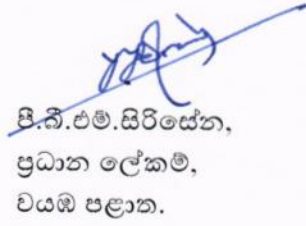 පී.බී.එම්.සිරිසේන,
ප්‍රධාන ලේකම්,
වයඹ පළාත.